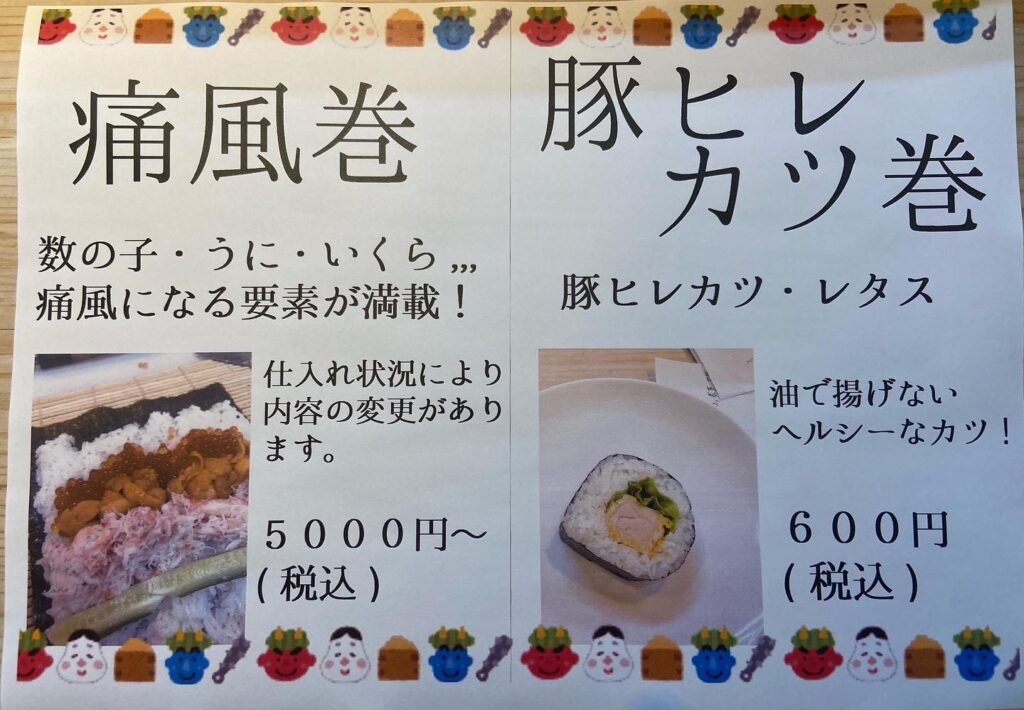 痛風巻
数の子・うに・いくら,,,
痛風になる要素が満載！
仕入れ状況により
内容の変更があり
ます。
５０００円～
(税込)
豚ヒレ
カツ巻
豚ヒレカツ・レタス
油で揚げない
ヘルシーなカツ！
６００円
(税込)